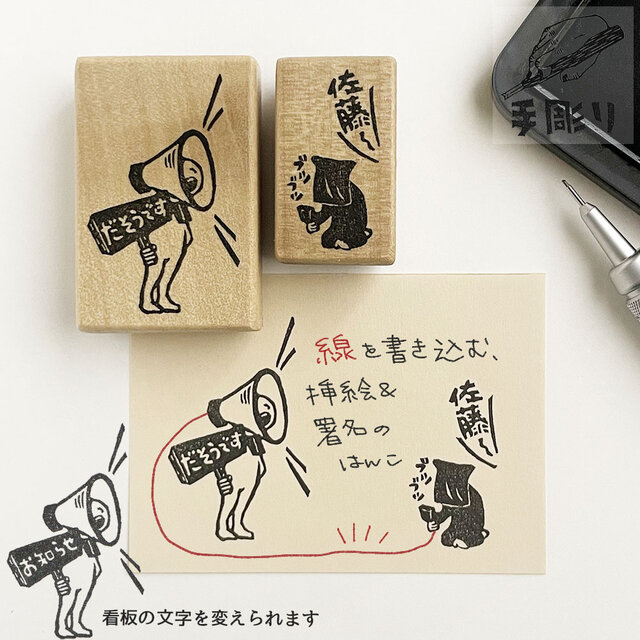 手彫り
佐藤〜
ブツブツ
だそうです
線を書き込む、
挿絵&
署名の
はんこ
佐藤〜
ブツブツ
だそうです
お知らせ
看板の文字を変えられます